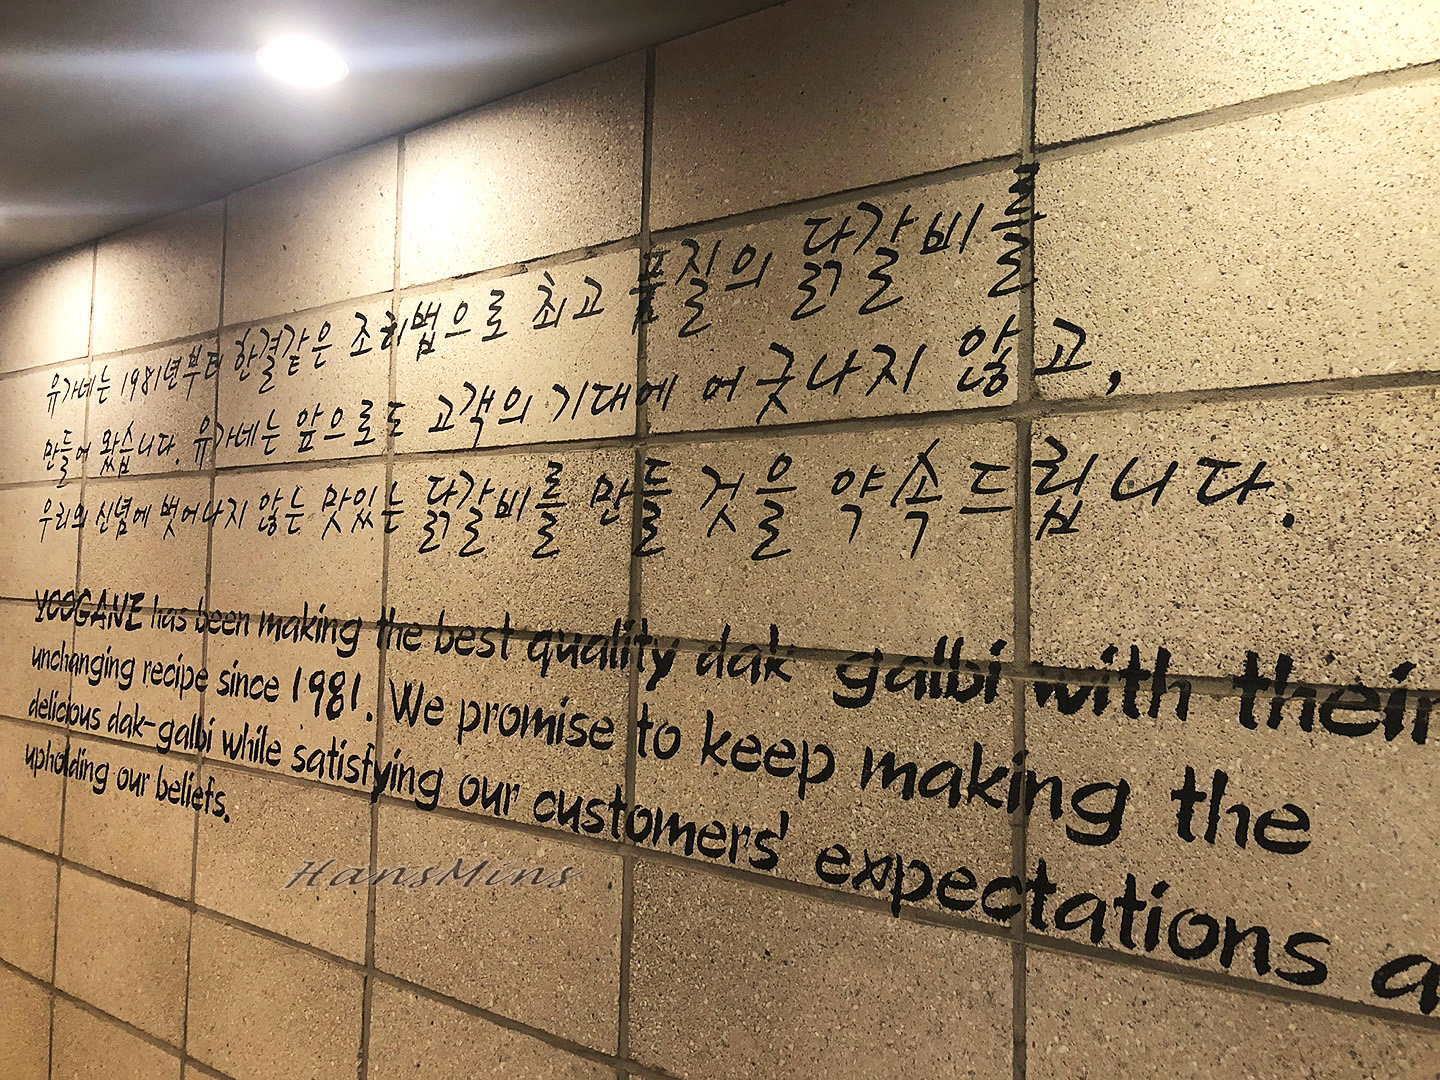 유가네는 1981년부터 한결같은 조리법으로 최고 품질의 닭갈비를
만들어 왔습니다. 유가네는 앞으로도 고객의 기대에 어긋나지 않고,
우리의 신념에 벗어나지 않는 맛있는 닭갈비를 만들 것을 약속드립니다.
YOOGANE has been making the best quality dak galbi with their
unchanging recipe since 1981. We promise to keep making the
delicious dak-galbi while satisfying our customers' expectations a
upholding our beliefs.
HansMins